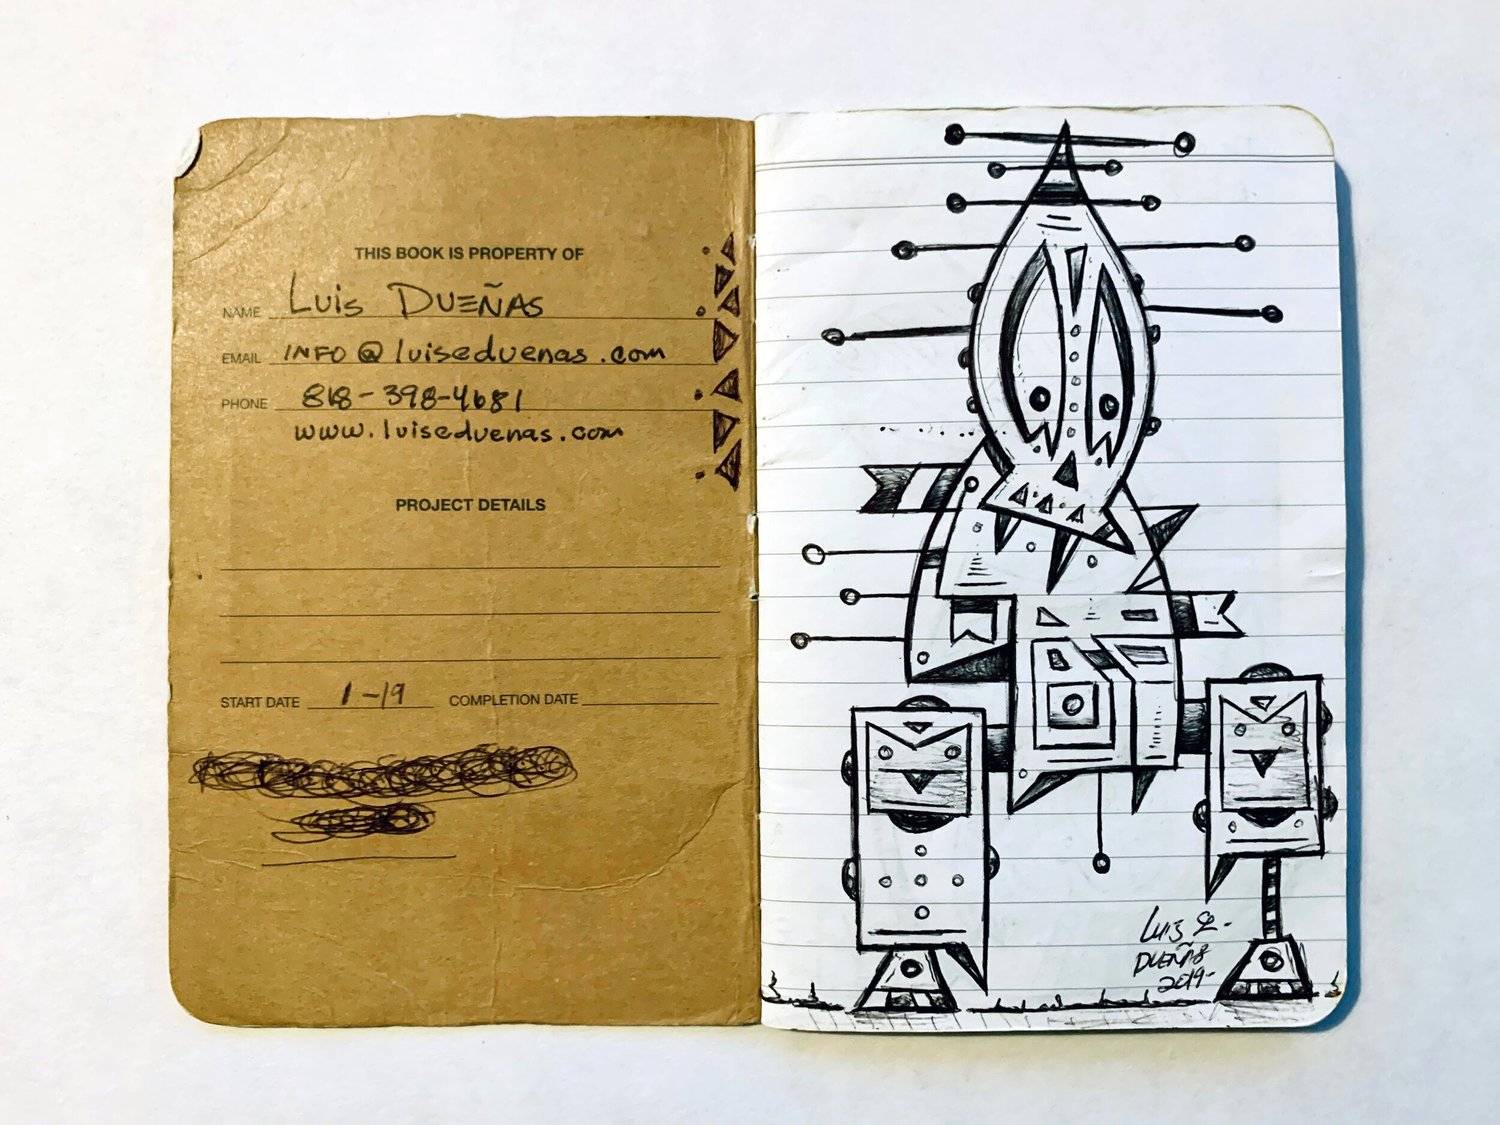 THIS BOOK IS PROPERTY OF
NAME Luis DUEÑAS
EMAIL INFO @ luiseduenas.com
PHONE 818-398-4681
www.luiseduenas.com
PROJECT DETAILS
START DATE 1-19 COMPLETION DATE
Luis E.
DUEÑAS
2019-